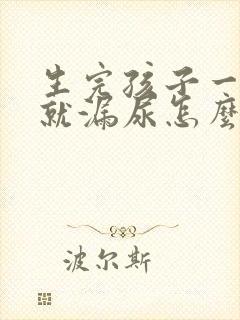 生完孩子一
就漏尿怎麼
波尔斯